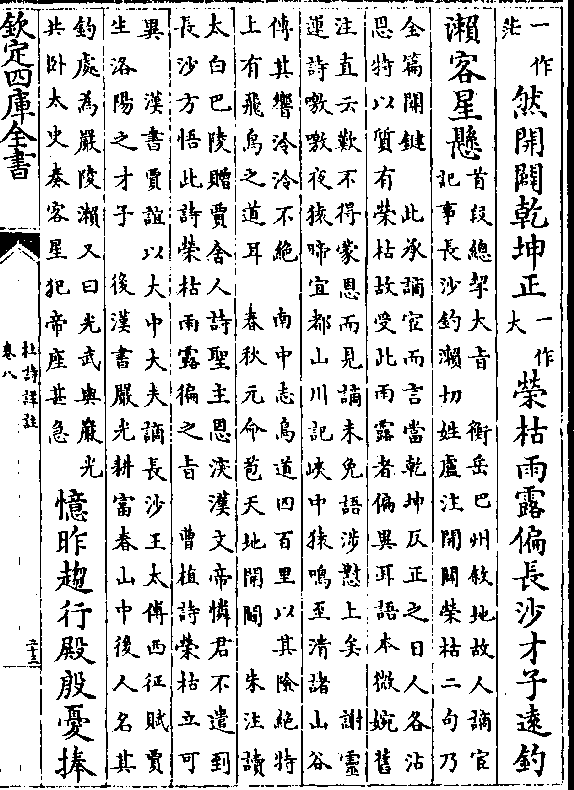 一作茫然開闢乾坤正一作大榮枯雨露偏長沙才子遠釣
瀨客星懸
首段總挈大旨 衡岳巴州敘地故人謫宦
記事長沙釣瀨切姓盧注開闢榮枯二句乃
全篇關鍵 此承謫宦而言當乾坤反正之日人各沾
恩特以質有榮枯故受此雨露者偏異耳語本微婉舊
注直云歎不得蒙恩而見謫未免語涉懟上矣 謝靈
運詩噭噭夜猿啼宜都山川記峽中猿鳴至清諸山谷
傳其響泠泠不絶 南中志鳥道四百里以其險絶特
上有飛鳥之道耳 春秋元命苞天地開闢 朱注讀
太白巴陵贈賈舍人詩聖主恩深漢文帝憐君不遣到
長沙方悟此詩榮枯雨露偏之旨 曹植詩榮枯立可
異 漢書賈誼以大中大夫謫長沙王太傅西征賦賈
生洛陽之才子 後漢書嚴光耕富春山中後人名其
釣處為嚴陵瀨又曰光武與嚴光
共卧太史奏客星犯帝座甚急
憶昨趨行殿殷憂捧
欽定四庫全書
杜詩詳註
卷八